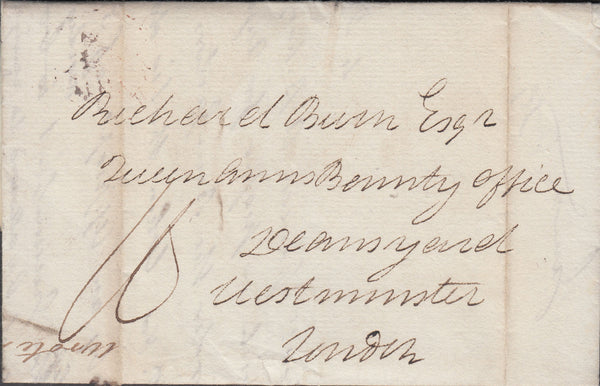 Richard Burn Esqr
Queen Anns Bounty office
Deans yard
Westminster
London